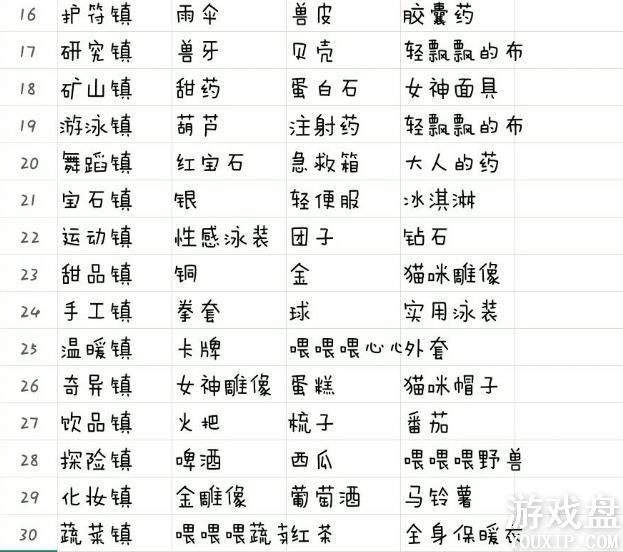 16 护符镇 雨伞 兽皮 胶囊药
17 研究镇 兽牙 贝壳 轻飘飘的布
18 矿山镇 甜药 蛋白石 女神面具
19 游泳镇 葫芦 注射药 轻飘飘的布
20 舞蹈镇 红宝石 急救箱 大人的药
21 宝石镇 银 轻便服 冰淇淋
22 运动镇 性感泳装 团子 钻石
23 甜品镇 铜 金 猫咪雕像
24 手工镇 拳套 球 实用泳装
25 温暖镇 卡牌 喂喂喂心心 外套
26 奇异镇 女神雕像 蛋糕 猫咪帽子
27 饮品镇 火把 梳子 番茄
28 探险镇 啤酒 西瓜 喂喂喂野兽
29 化妆镇 金雕像 葡萄酒 马铃薯
30 蔬菜镇 喂喂喂蔬 红茶 全身保暖衣
游戏盘
YOUXIP.COM